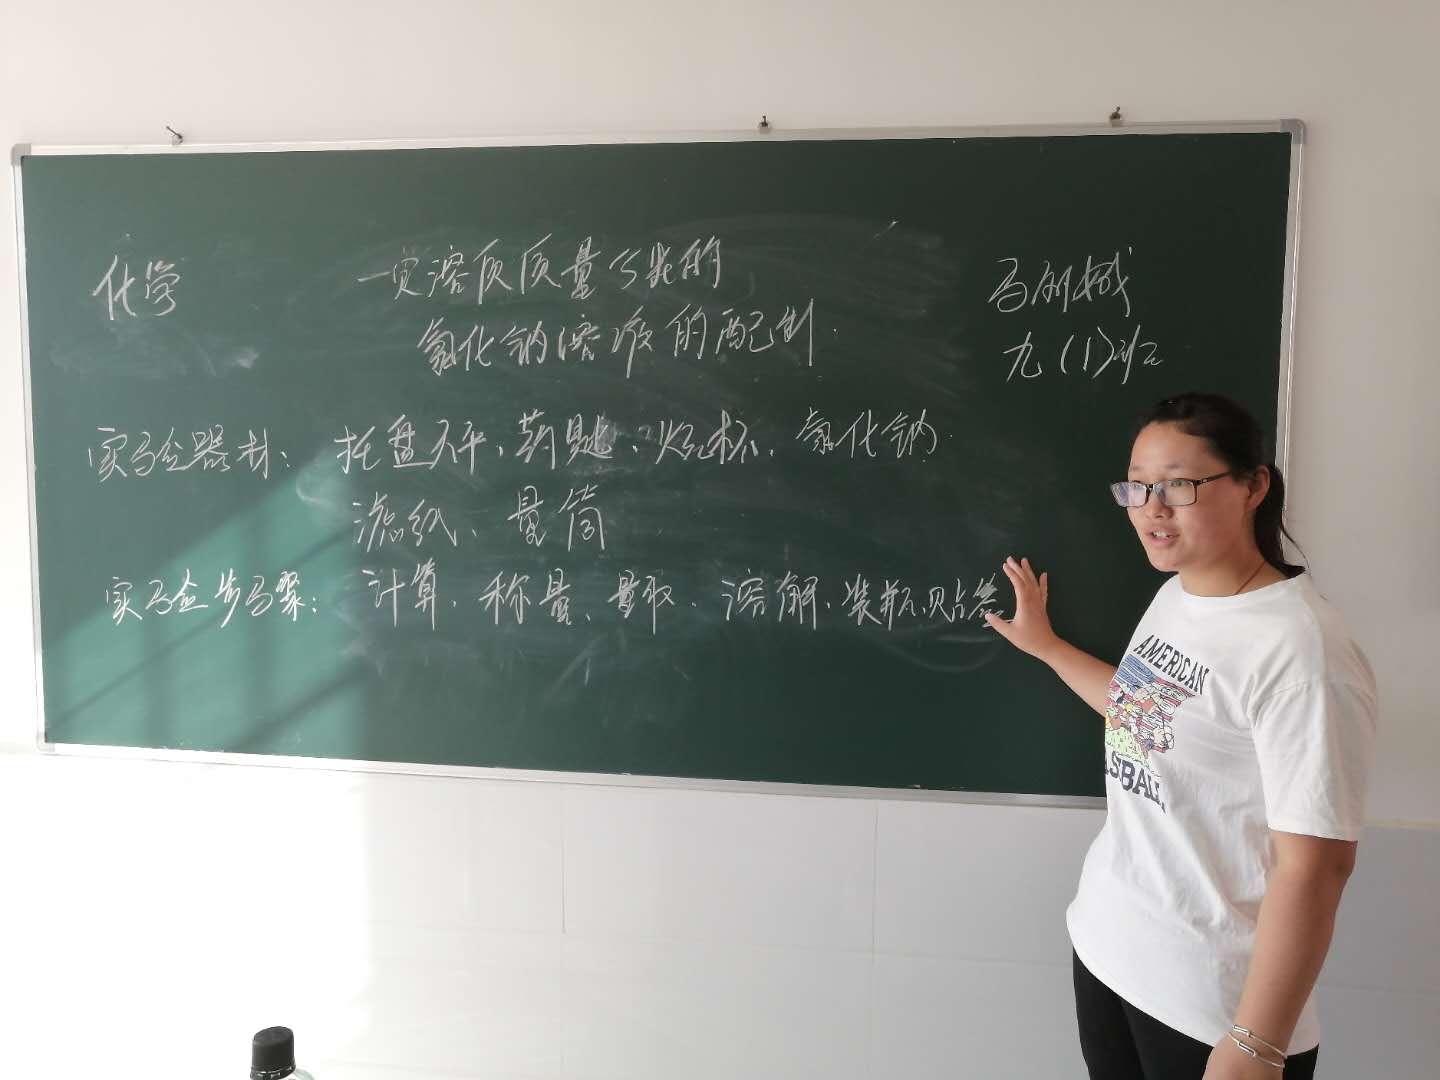 化学
一定溶质质量分数的
氯化钠溶液的配制.
九(1)班
实验器材：托盘天平、药匙、烧杯、氯化钠
滤纸、量筒
实验步骤：计算、称量、量取、溶解、装瓶、贴签
AMERICAN